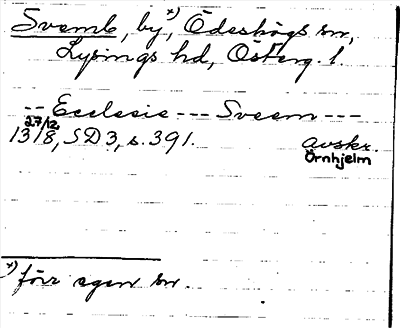 Svemb, by x), Ödeshögs sn,
Lysings hd, Österg. l.
-- Ecclesie --- Sveem ---
27/12
1318, SD3, s. 391. avskr.
Örnhjelm
x) förr egen sn.